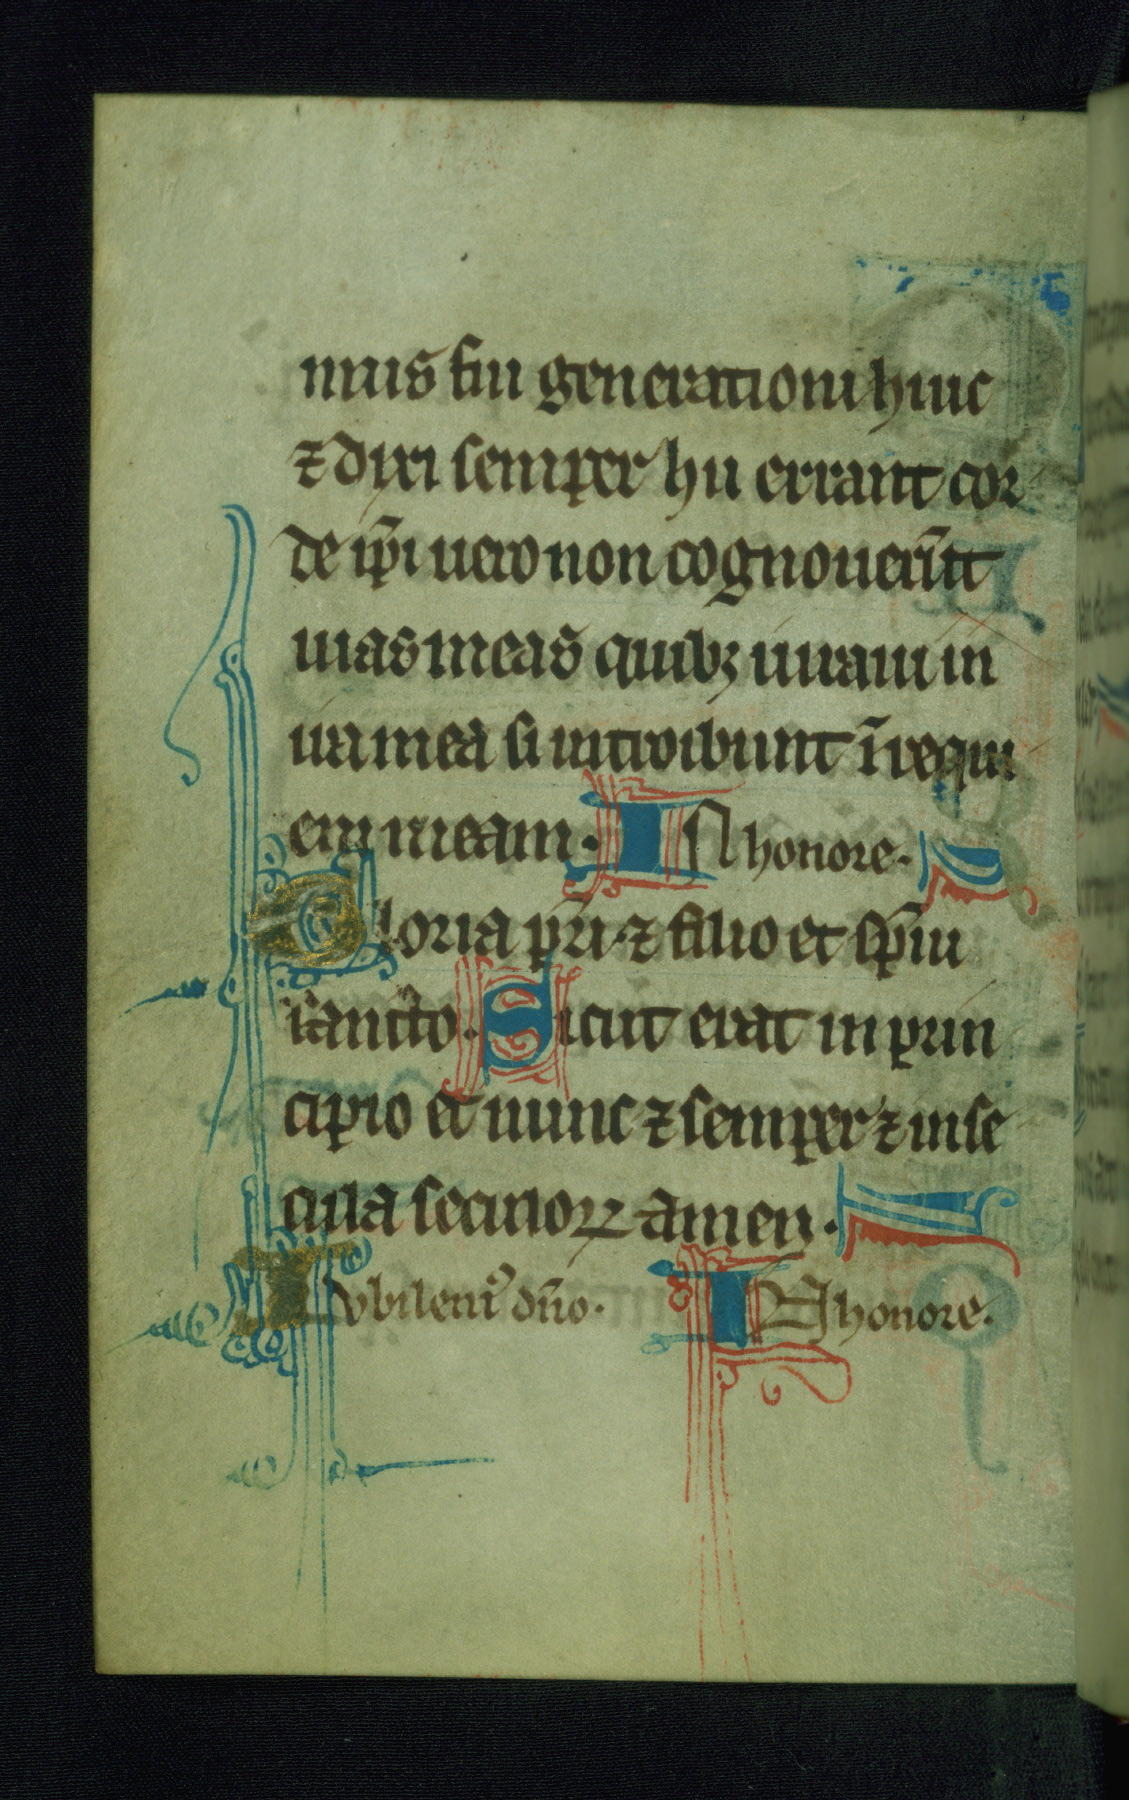 mus fui generationi huic
⁊ dixi semper hii errant cor
de ip̄i uero non cognouer̄nt
uias meas quibꝫ iuraui in
ira mea si introibunt ī requi
em meam. IN honore.
Gloria pr̄i ⁊ filio et sp̄iu
sancto. Sicut erat in prin
cipio et nunc ⁊ semper ⁊ in se
cula seculoꝝ amen.
Iubilem᷒ dn̄o. IN honore.